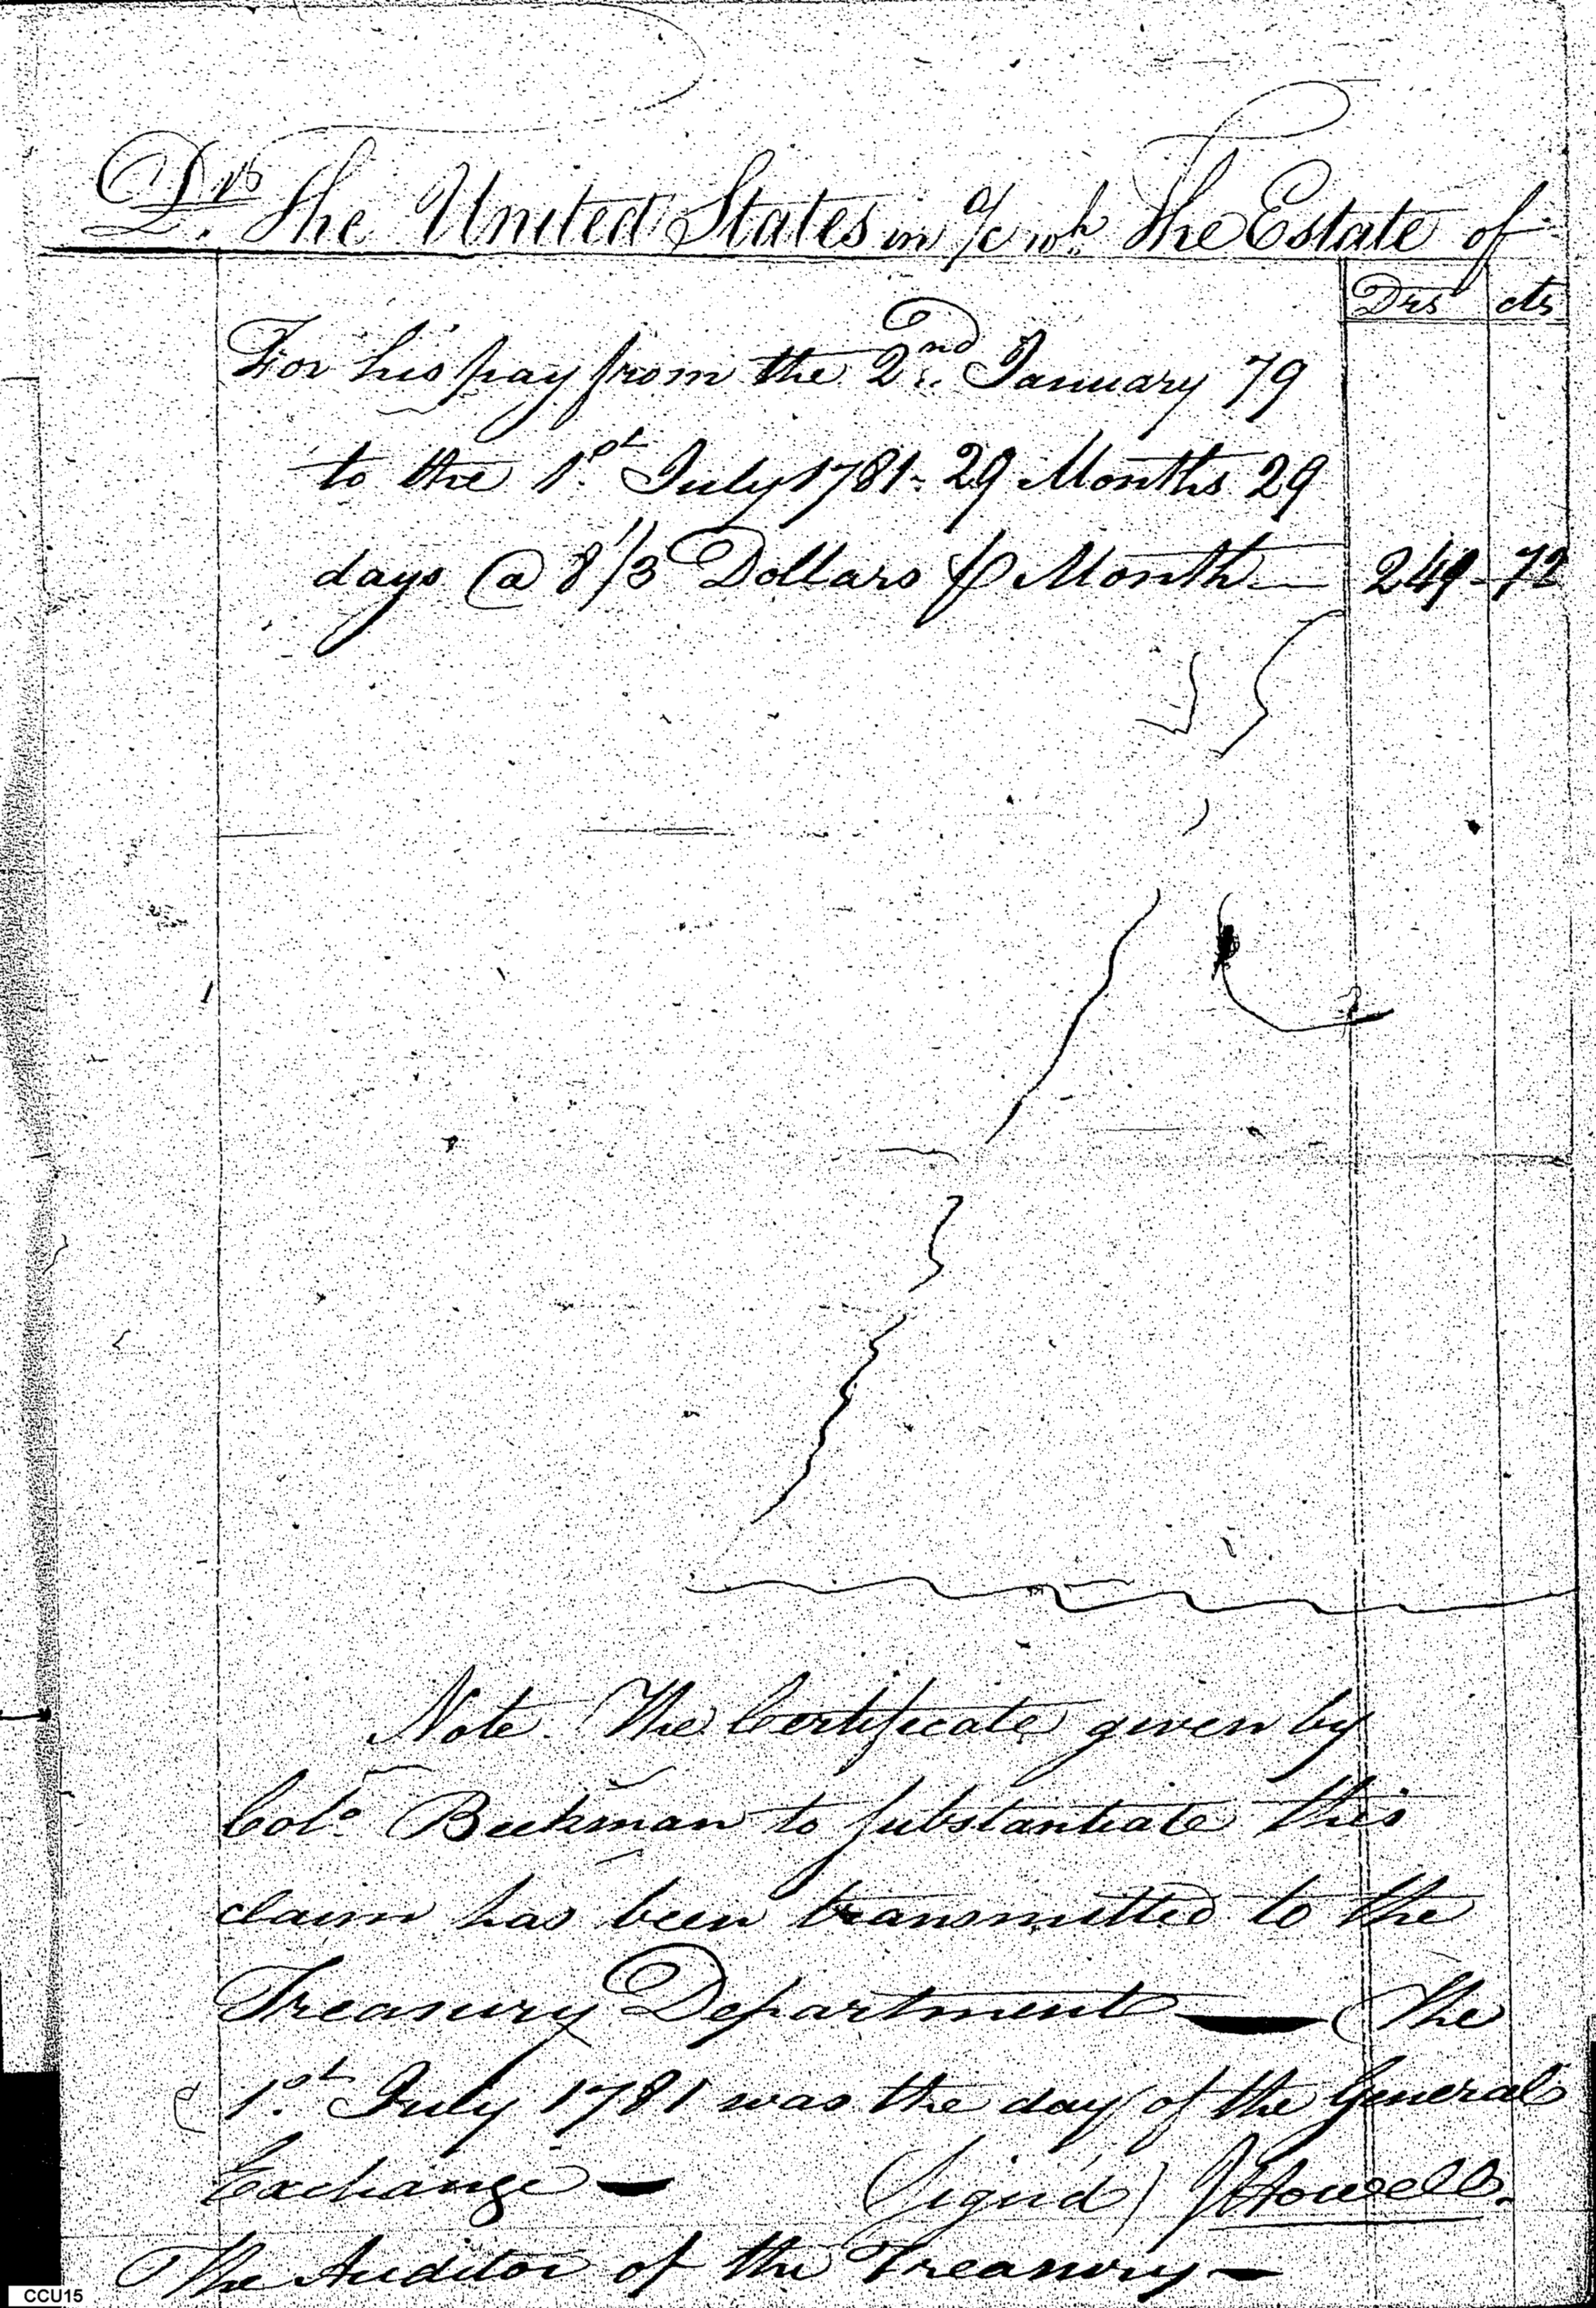 Drs The United States in a/c wh. The Estate of
Drs cts
For his pay from the 2nd January 79
to the 1st July 1781 - 29 Months 29
days @ 8 1/3 Dollars P Month — 249 - 72
Note. The Certificate given by
Colo. Beekman to substantiate this
claim has been transmitted to the
Treasury Department — The
1st July 1781 was the day of the General
Exchange — (Signd) J Howell.
The Auditor of the Treasury —
CCU15